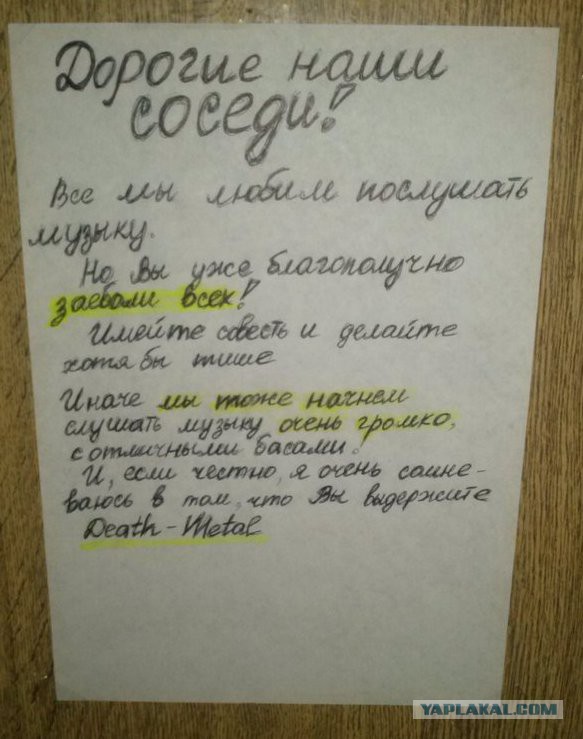 Дорогие наши
соседи!
Все мы любим послушать
музыку.
Но Вы уже благополучно
заебали всех!
Имейте совесть и делайте
хотя бы тише
Иначе мы тоже начнем
слушать музыку очень громко,
с отличными басами!
И, если честно, я очень сомне-
ваюсь в том, что Вы выдержите
Death-Metal
YAPLAKAL.COM